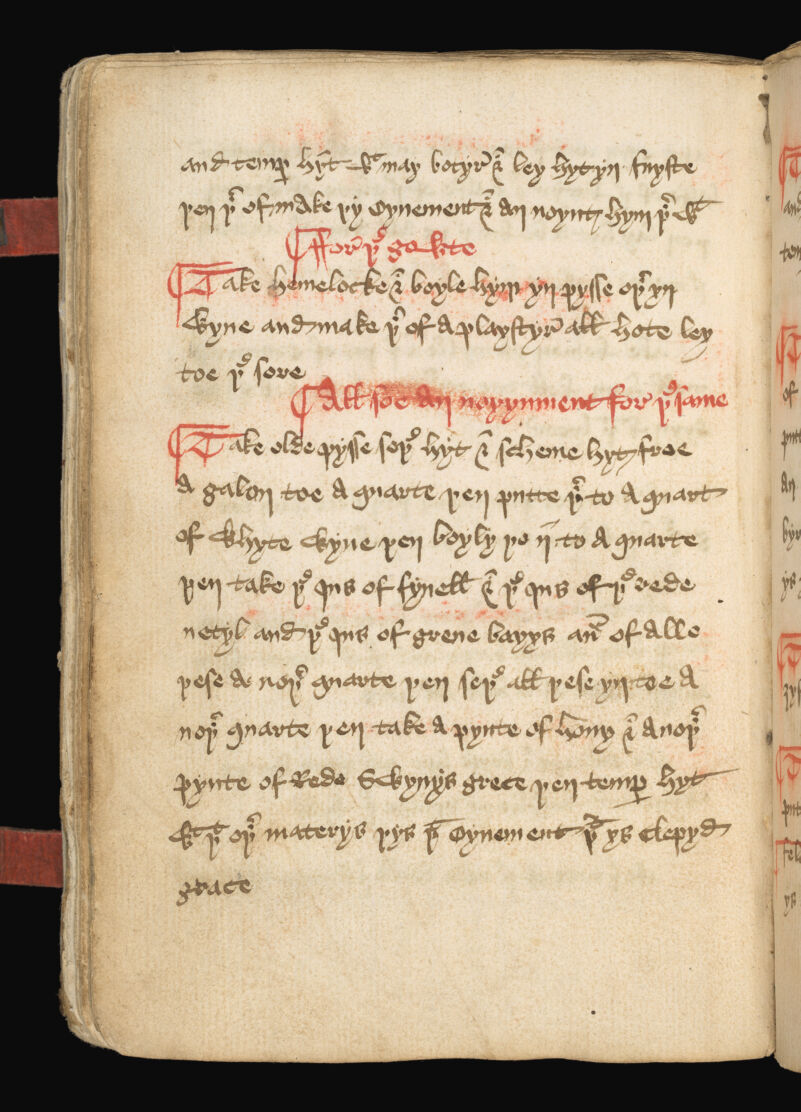 and temp hyt wt may botyr & ley hyt yn fryste
þen þr of make þy oynement & an noynt hym þr wt
For þe gowte
Take hemelocke & boyle hym yn pysse oþr yn
wyne and make þr of a playstyr all hote ley
toe þe sore
All soe an noyynment for þe same
Take olde pysse seþe hyt & scheme hyt froe
a galon toe a quarte þen putte þr to a quart
of whyte wyne þen boyly þo ii to a quarte
þen take þe ius of fynell & þe ius of þe rede
netyl and þe ius of grene bayys an of alle
þese a noþr quarte þen seþe all þese yn toe a
noþr quarte þen take a pynte of hony & a noþr
pynte of Rede Swynys grece þen temp hyt
wt þe oþr materys þys oynement þt ys clepyd
grace